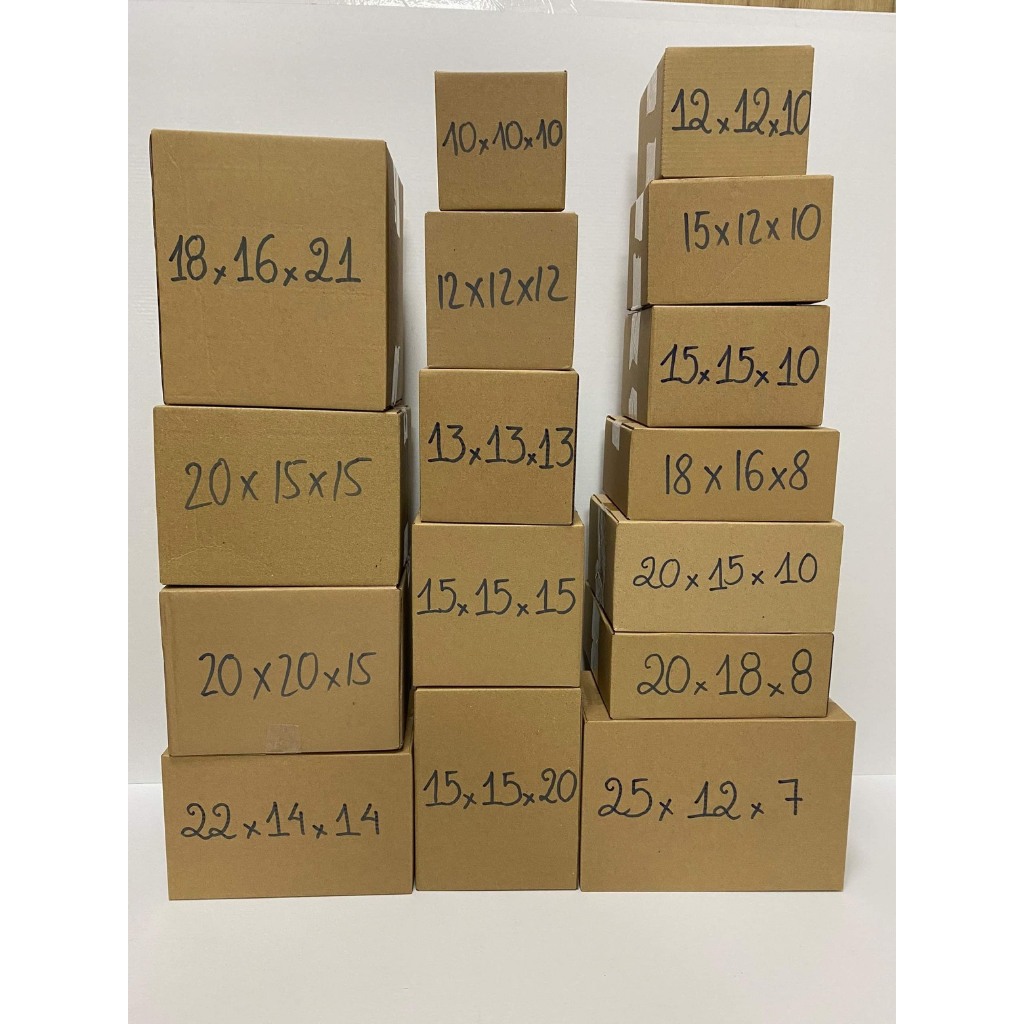 18x16x21
20x15x15
20x20x15
22x14x14
10x10x10
12x12x12
13x13x13
15x15x15
15x15x20
12x12x10
15x12x10
15x15x10
18x16x8
20x15x10
20x18x8
25x12x7